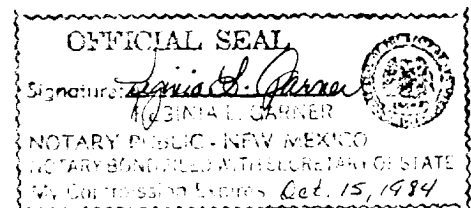 OFFICIAL SEAL
Signature: Virginia L. Garner
VIRGINIA L. GARNER
NOTARY PUBLIC - NEW MEXICO
NOTARY BOND FILED WITH SECRETARY OF STATE
My Commission Expires Oct. 15, 1984